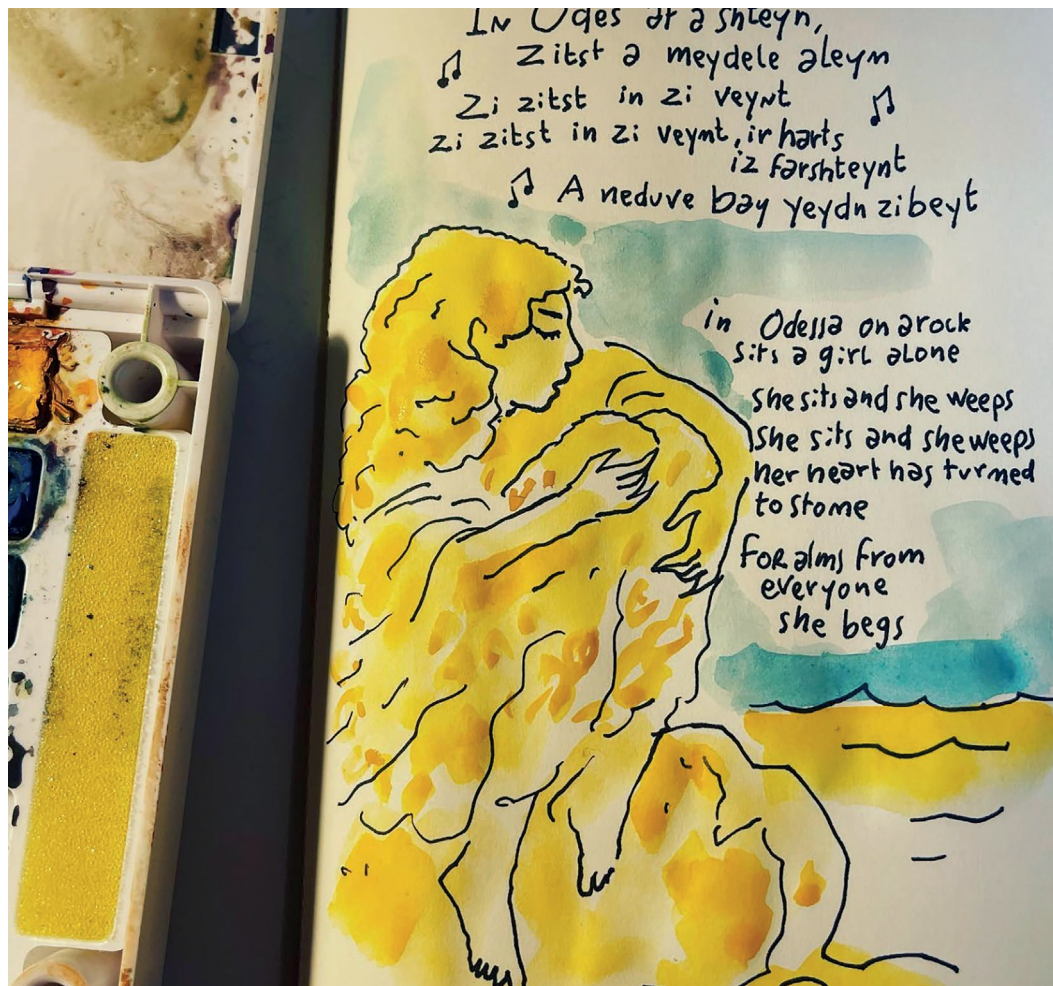 In Odes af a shteyn,
Zitst a meydele aleyn
Zi zitst in zi veynt
zi zitst in zi veynt, ir harts
iz farshteynt
A neduve bay yeydn zi beyt
in Odessa on a rock
sits a girl alone
she sits and she weeps
she sits and she weeps
her heart has turned
to stome
for alms from
everyone
she begs